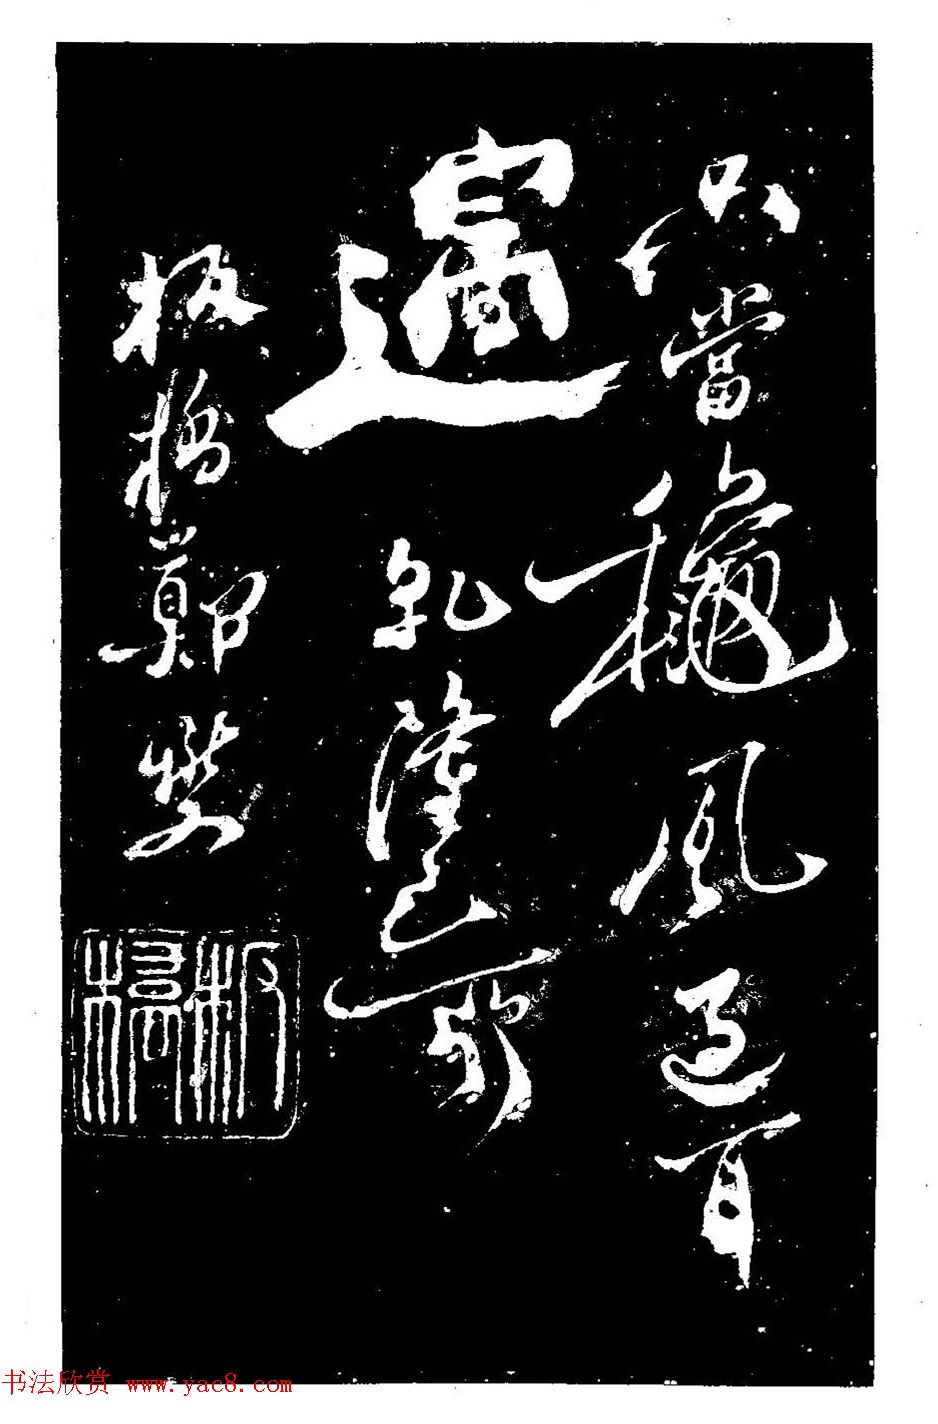 只當穐風過耳
邊
乾隆己卯
板橋鄭燮
板橋
书法欣赏 www.yac8.com